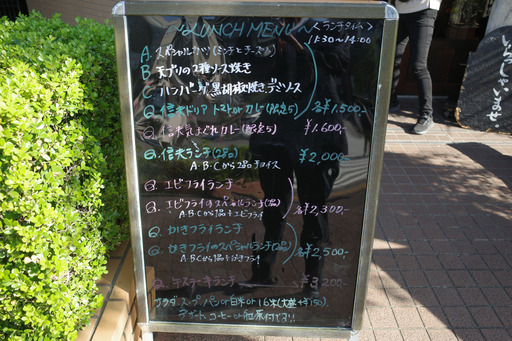 〜LUNCH MENU〜
<ランチタイム>
11:30〜14:00
A. スペシャルカツ(ミンチとチーズ)
B 天ブリの2種ソース焼き
C ハンバーグ黒胡椒焼きデミソース
信夫ドリア トマト or カレー 各¥1,500-
信夫気まぐれカレー ¥1,600-
信夫ランチ(2品) ¥2,000-
A・B・Cから2品チョイス
エビフライランチ
エビフライのスペシャルランチ(2品) 各¥2,300-
A・B・Cから1品+エビフライ
かきフライランチ
かきフライのスペシャルランチ(2品) 各¥2,500-
A・B・Cから1品+かきフライ
ステーキランチ ¥3,200-
サラダ、スープ、パン or 白米 or 16米(大盛+¥150)、
デザート、コーヒー or 紅茶付です!!
いらっしゃいませ